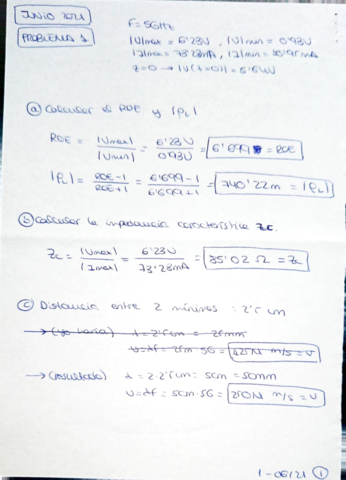 JUNIO 2021
PROBLEMA 1
f = 5GHz
|V|max = 6'23V, |V|min = 0'93V
|I|max = 73'28mA, |I|min =
z=0 → |V(z=0)| =
a) Calcular el ROE y |ρL|
ROE = |Vmax| / |Vmin| = 6'23V / 0'93V = 6'699 = ROE
|ρL| = ROE-1 / ROE+1 = 6'699-1 / 6'699+1 = 740'22m = |ρL|
b) Calcular la impedancia característica Zc.
Zc = |Vmax| / |Imax| = 6'23V / 73'28mA = 85'02 Ω = Zc
c) Distancia entre 2 mínimos: 2'5 cm
→ (yo haría) λ = 2'5cm = 25mm
v=λf = 25m·5G = 125M m/s = v
→ (resultado) λ = 2·2'5cm = 5cm = 50mm
v=λf = 5cm·5G = 250M m/s = v
1-06/21 1